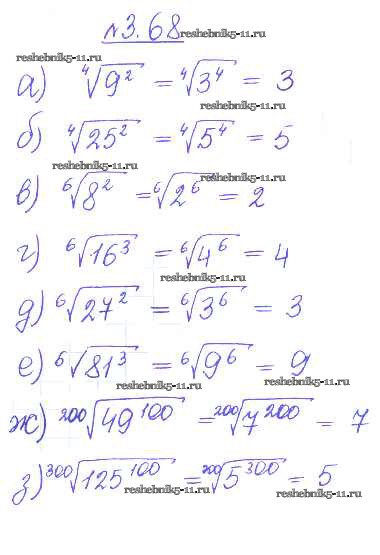 №3.68 reshebnik5-11.ru
reshebnik5-11.ru
а) ⁴√9² = ⁴√3⁴ = 3
reshebnik5-11.ru
б) ⁴√25² = ⁴√5⁴ = 5
reshebnik5-11.ru
reshebnik5-11.ru
в) ⁶√8² = ⁶√2⁶ = 2
г) ⁶√16³ = ⁶√4⁶ = 4
reshebnik5-11.ru
д) ⁶√27² = ⁶√3⁶ = 3
reshebnik5-11.ru
е) ⁶√81³ = ⁶√9⁶ = 9
reshebnik5-11.ru
reshebnik5-11.ru
ж) ²⁰⁰√49¹⁰⁰ = ²⁰⁰√7²⁰⁰ = 7
з) ³⁰⁰√125¹⁰⁰ = ³⁰⁰√5³⁰⁰ = 5
reshebnik5-11.ru
reshebnik5-11.ru